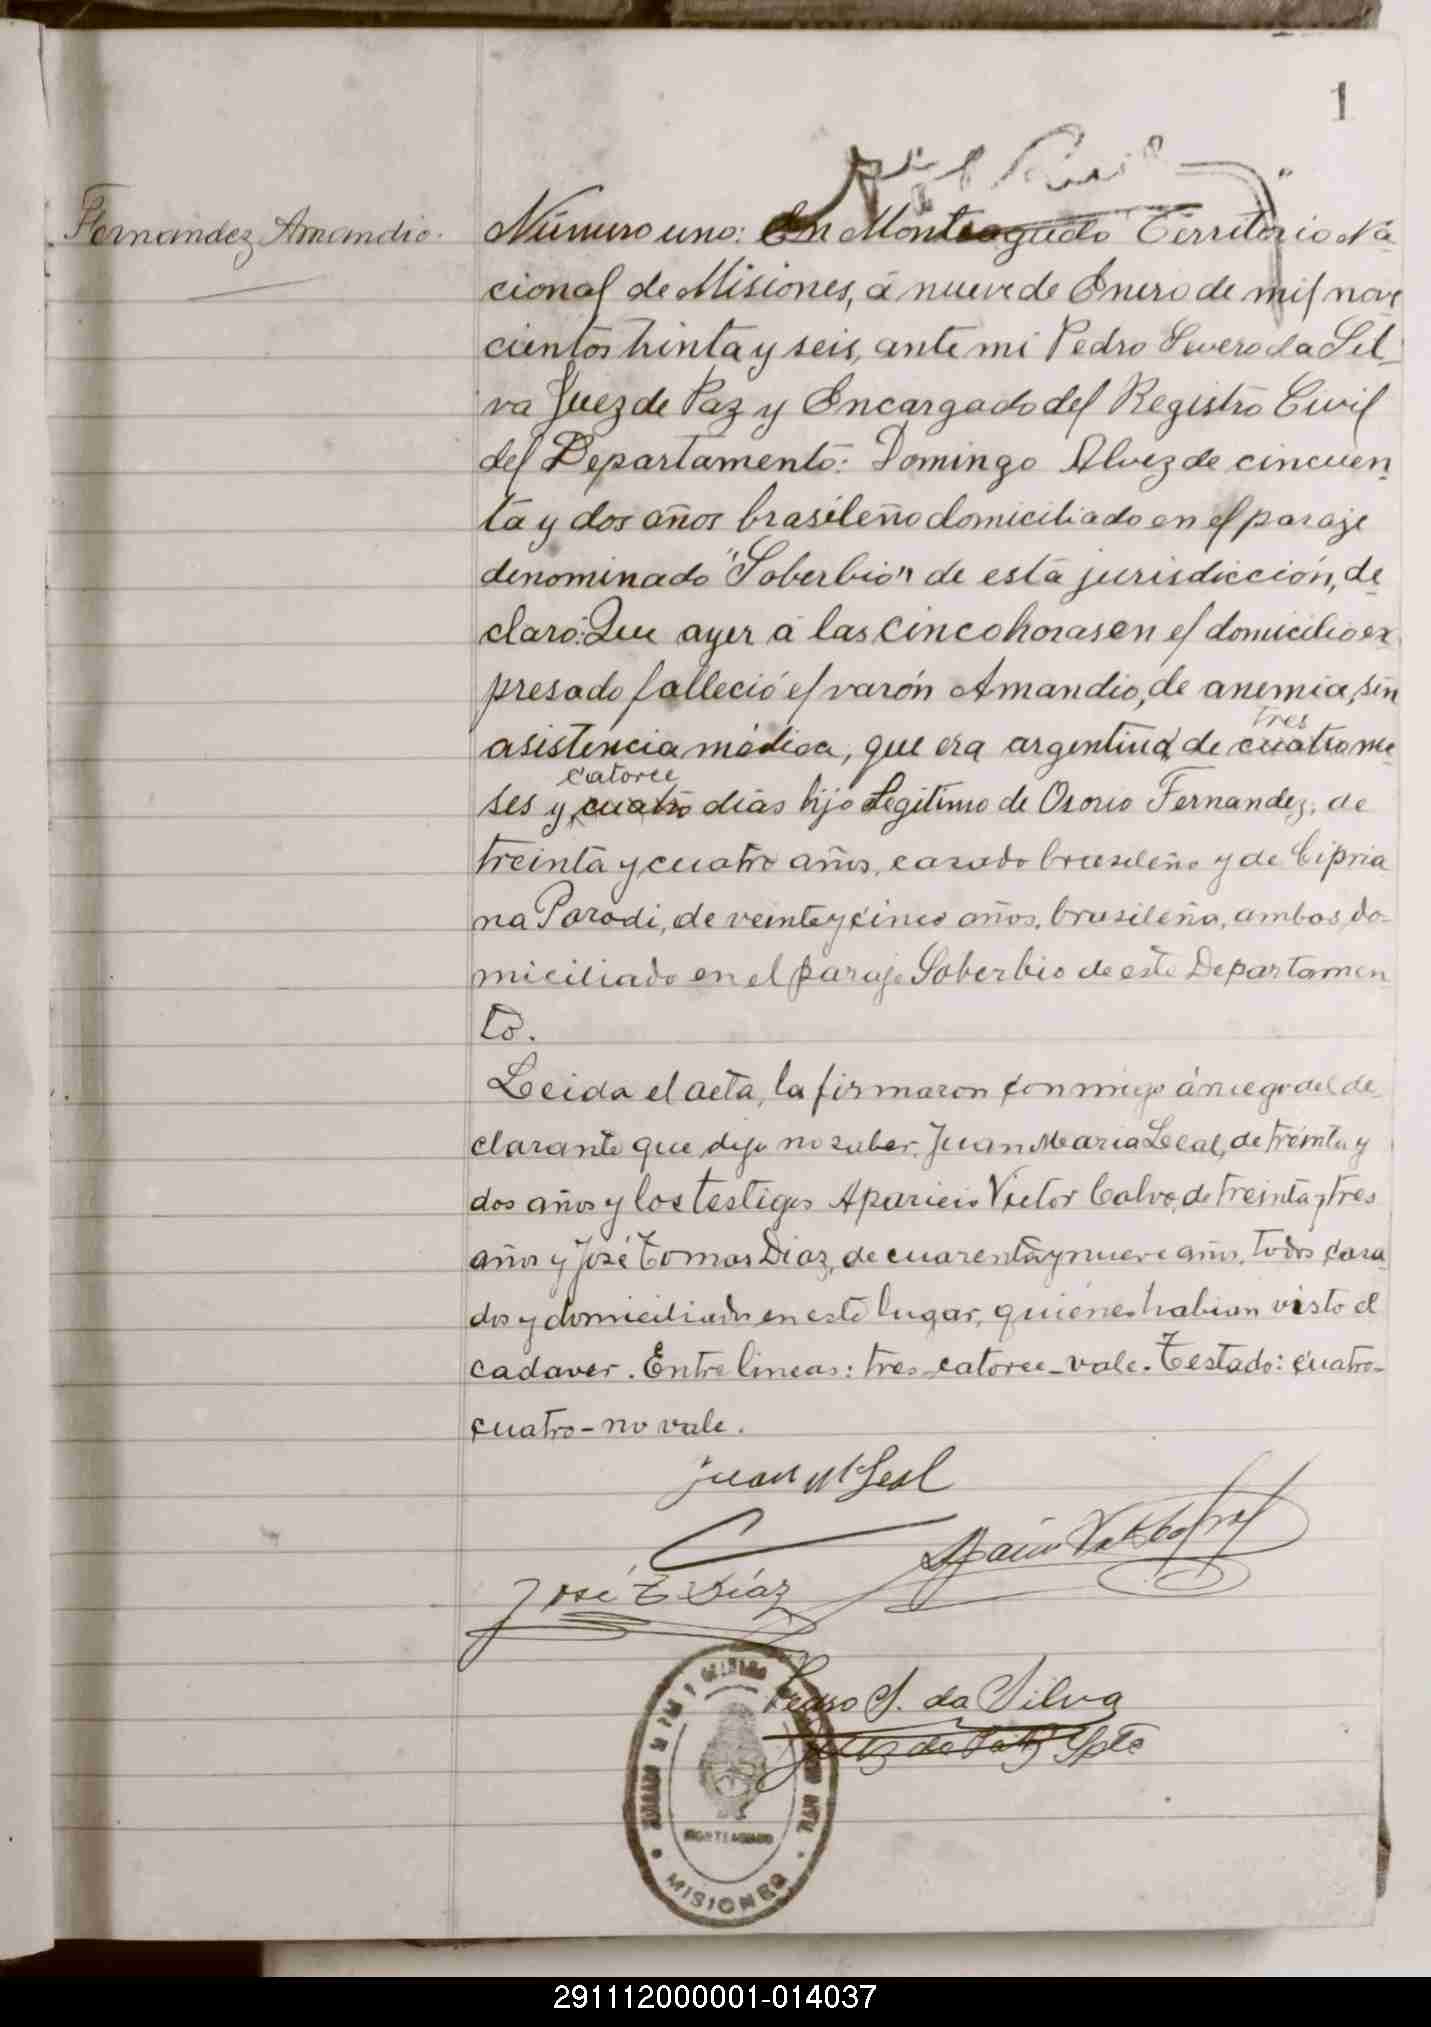 1
Fernandez Amandio.
Número uno: En Monteagudo Territorio Na
cional de Misiones, á nueve de Enero de mil nove
cientos treinta y seis, ante mi Pedro Severo da Sil
va Juez de Paz y Encargado del Registro Civil
del Departamento: Domingo Alvez de cincuen
ta y dos años brasileño domiciliado en el paraje
denominado "Soberbio" de esta jurisdicción, de
claró: Que ayer á las cinco horas en el domicilio ex
presado falleció el varón Amandio, de anemia, sin
tres
asistencia médica, que era argentino, de cuatro me
catorce
ses y cuatro días hijo Legitimo de Osorio Fernandez, de
treinta y cuatro años, casado brasileño y de Cipria
na Parodi, de veinte y cinco años, brasileña, ambos do-
miciliado en el paraje Soberbio de este Departamen
to.
Leida el acta, la firmaron conmigo á ruego del de
clarante que dijo no saber, Juan Maria Leal, de treinta y
dos años y los testigos Aparicio Victor Calvo, de treinta y tres
años y José Tomas Diaz, de cuarenta y nueve años, todos casa
dos y domiciliados en este lugar, quiénes habian visto el
cadaver. Entre lineas: tres-catorce-vale. Testado: cuatro-
cuatro-no vale.
Juan Mª Leal
José T. Díaz
Pedro S. da Silva
Juez de Paz Spte
JUZGADO DE PAZ Y REGISTRO CIVIL
MONTEAGUDO
MISIONES
291112000001-014037